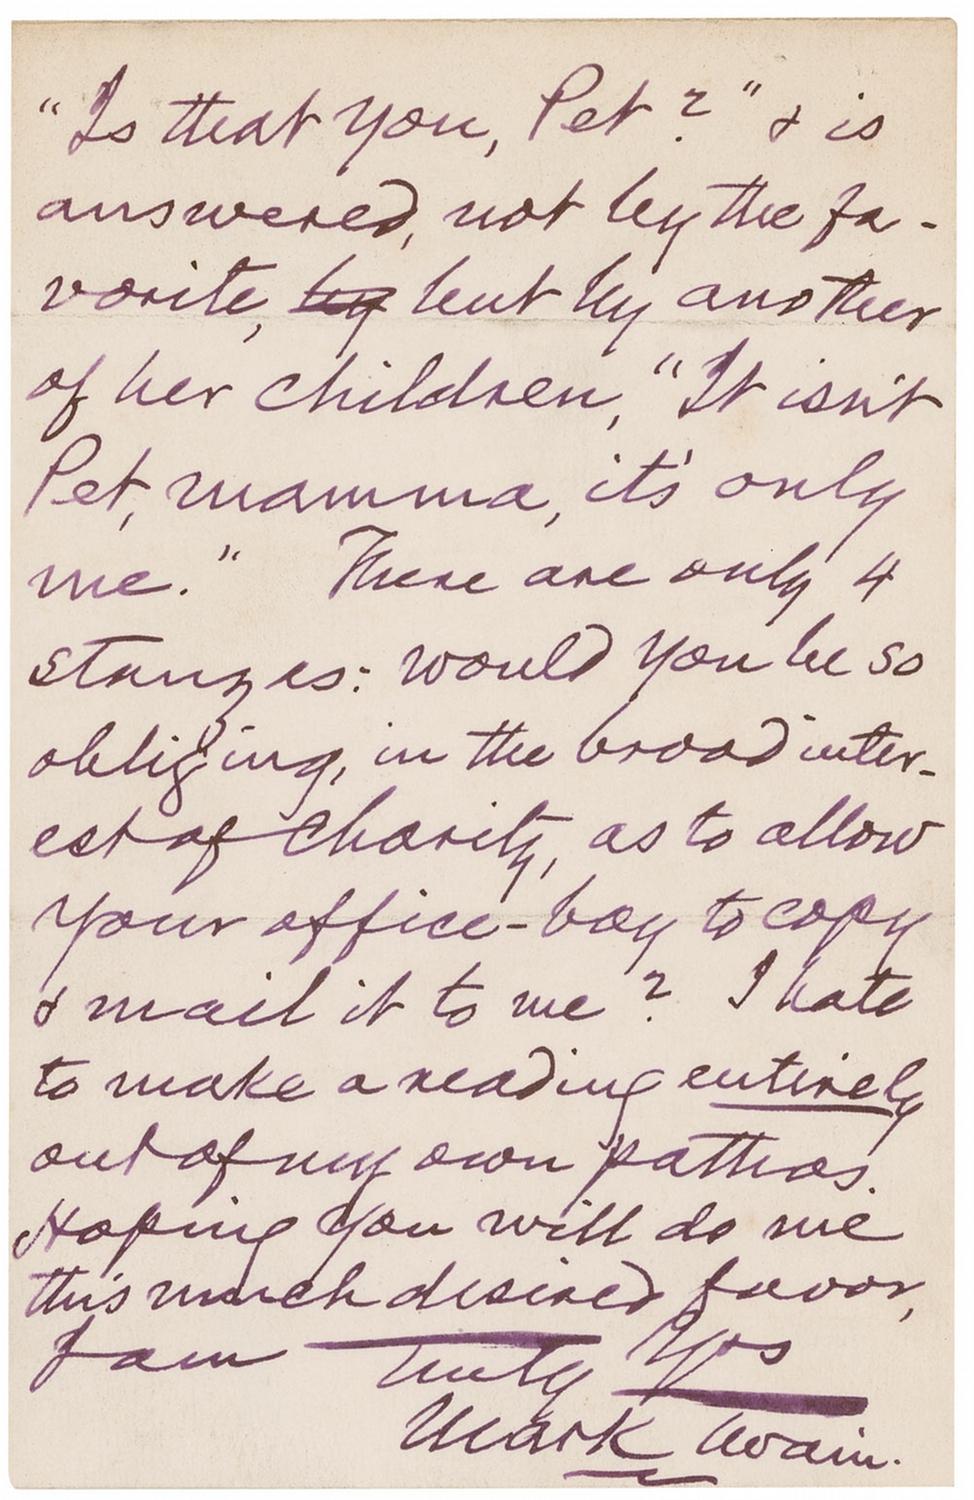 "Is that you, Pet?" & is
answered, not by the fa-
vorite, by but by another
of her children, "It isn't
Pet, mamma, it's only
me." There are only 4
stanzas: would you be so
obliging, in the broad inter-
est of charity, as to allow
your office-boy to copy
& mail it to me? I hate
to make a reading entirely
out of my own pathos.
Hoping you will do me
this much desired favor,
I am Truly Yrs
Mark Twain.